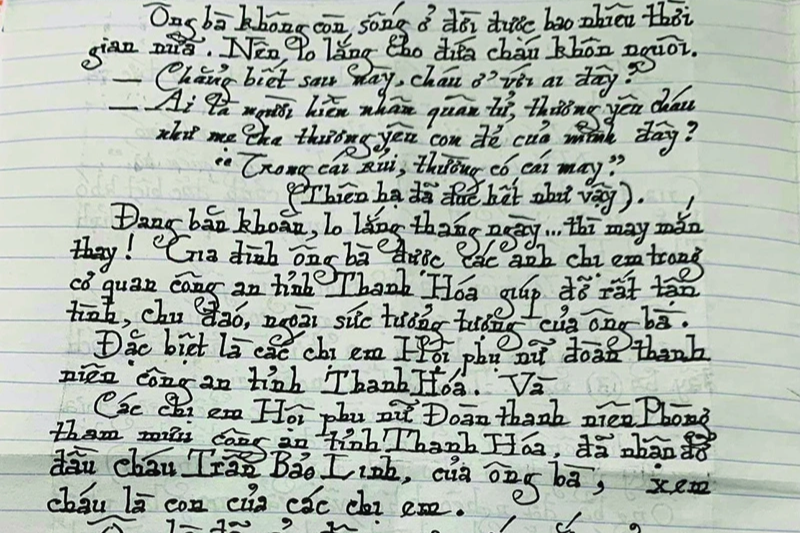 Ông bà không còn sống ở đời được bao nhiêu thời
gian nữa. Nên lo lắng cho đứa cháu khôn nguôi.
— Chẳng biết sau này, cháu ở với ai đây?
— Ai là người hiền nhân quân tử, thương yêu cháu
như mẹ cha thương yêu con đẻ của mình đây?
"Trong cái rủi, thường có cái may"
(Thiên hạ đã đúc kết như vậy).
Đang băn khoăn, lo lắng tháng ngày... thì may mắn
thay! Gia đình ông bà được các anh chị em trong
cơ quan công an tỉnh Thanh Hóa giúp đỡ rất tận
tình, chu đáo, ngoài sức tưởng tượng của ông bà.
Đặc biệt là các chị em Hội phụ nữ đoàn thanh
niên công an tỉnh Thanh Hóa. Và
Các chị em Hội phụ nữ Đoàn thanh niên Phòng
tham mưu công an tỉnh Thanh Hóa, đã nhận đỡ
đầu cháu Trần Bảo Linh, của ông bà, xem
cháu là con của các chị em.